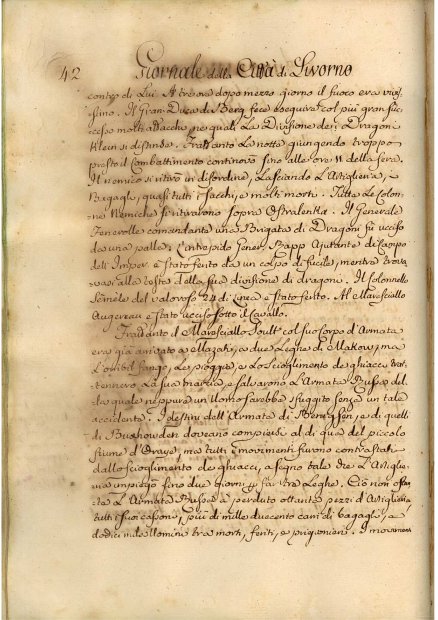 42 Giornale della Città di Livorno
contro di Lui. A tre ore dopo mezzo giorno il fuoco era vivis=
simo. Il Gran Duca di Berg fece eseguire col più gran suc=
cesso molti attacchi ne quali La Divisione dei Dragoni
Klein si distinse. Frattanto La notte giungendo troppo
presto il Combattimento continovò fino alle ore 11 della sera.
Il nemico si ritirò in disordine, Lasciando L'Artiglieria, i
Bagagli, quasi tutti i sacchi, e molti morti. Tutte Le Colon=
ne Nemiche si ritiravano sopra Ostralenka. Il Generale
Fenerolle comandante una Brigata di Dragoni fu ucciso
da una palla: L'intrepido Gener. Rapp Ajutante di Campo
dell'Imper. è stato ferito da un colpo di fucile, mentre trova=
vasi alla testa della sua divisione di dragoni. Il Colonnello
Semèle del valoroso 24 di Linea è stato ferito. Al Maresciallo
Augereau è stato ucciso sotto il Cavallo.
Frattanto il Maresciallo Soult col suo corpo d'Armata
era già arrivato a Mazati, a due Leghe di Makow, ma
L'orribil fango, Le pioggie, e Lo scioglimento de ghiacci trat=
tennero La sua marcia, e salvarono L'Armata Russa del=
la quale neppure un Uomo sarebbe sfuggito senza un tale
accidente. I destini dell'Armata di Benigsen, e di quella
di Buxhowden doveano compiersi al di quà del piccolo
fiume d'Orcye, ma tutti i movimenti furono contrastati
dallo scioglimento de ghiacci, a segno tale che L'Artiglie=
ria impiegò fino due giorni p far tre Leghe. Ciò non ostan=
te L'Armata Russa à perduto ottanta pezzi d'Artiglieria
tutti i suoi cassoni, più di mille duecento carri di bagagli, e
dodici mila Uomini tra morti, feriti, e prigionieri. I movimen=